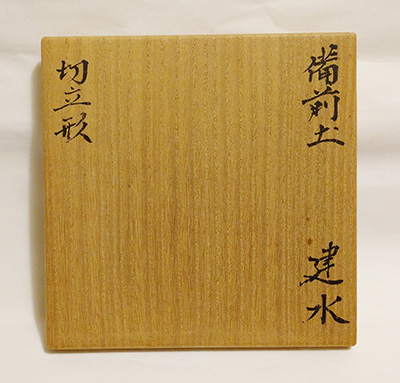 備前土 建水
切立形